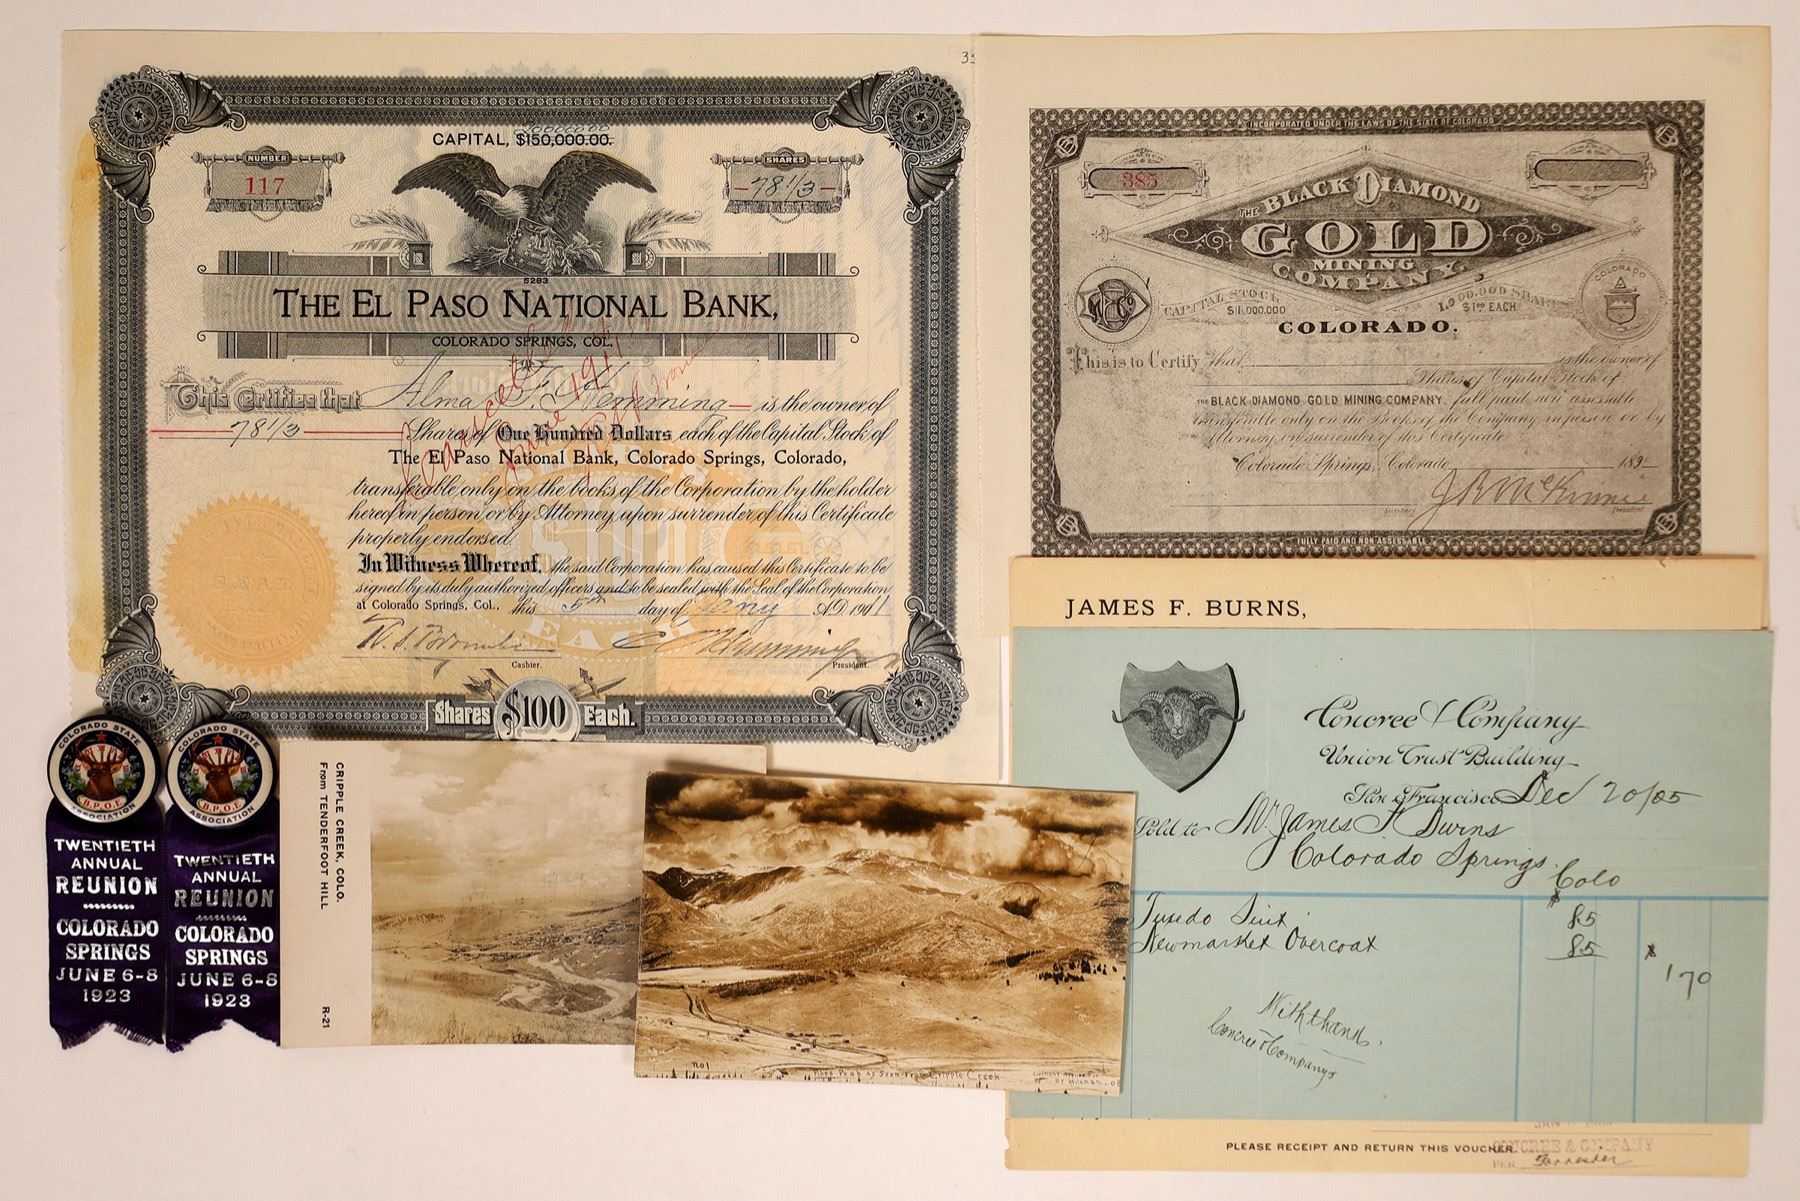 CAPITAL, $150,000.00.
NUMBER
117
SHARES
-78 1/3-
5283
THE EL PASO NATIONAL BANK,
COLORADO SPRINGS, COL.
This Certifies that Alma F. Hemming is the owner of
78 1/3 Shares of One Hundred Dollars each of the Capital Stock of
The El Paso National Bank, Colorado Springs, Colorado,
transferable only on the books of the Corporation by the holder
hereof in person or by Attorney upon surrender of this Certificate
properly endorsed.
In Witness Whereof, the said Corporation has caused this Certificate to be
signed by its duly authorized officers and to be sealed with the Seal of the Corporation
at Colorado Springs, Col., this 5th day of A.D. 1901
Cashier.
President.
EACH
Shares $100 Each.
INCORPORATED UNDER THE LAWS OF THE STATE OF COLORADO
NUMBER
385
THE BLACK DIAMOND
GOLD
MINING
COMPANY.
CAPITAL STOCK
$1,000.000
1,000.000 SHARES
$1.00 EACH
COLORADO
COLORADO.
This is to Certify that is the owner of
Shares of Capital Stock of
THE BLACK DIAMOND GOLD MINING COMPANY, full paid, non assessable
transferable only on the Books of the Company in person or by
Attorney on surrender of this Certificate
Colorado Springs, Colorado 189
J R McKinnie
Secretary
President
FULLY PAID AND NON ASSESSABLE
JAMES F. BURNS,
Concree & Company
Union Trust Building
San Francisco Dec 20/05
Sold to Mr James F Burns
Colorado Springs
Colo
Tuxedo Suit $ 85
Newmarket Overcoat 85 $ 170
With thanks.
Concree & Company
PLEASE RECEIPT AND RETURN THIS VOUCHER
CONCREE & COMPANY
PER
COLORADO STATE
B.P.O.E.
ASSOCIATION
TWENTIETH
ANNUAL
REUNION
COLORADO
SPRINGS
JUNE 6-8
1923
COLORADO STATE
B.P.O.E.
ASSOCIATION
TWENTIETH
ANNUAL
REUNION
COLORADO
SPRINGS
JUNE 6-8
1923
CRIPPLE CREEK, COLO.
From TENDERFOOT HILL
R-21
No 1
Pikes Peak As Seen From Cripple Creek
By Hileman